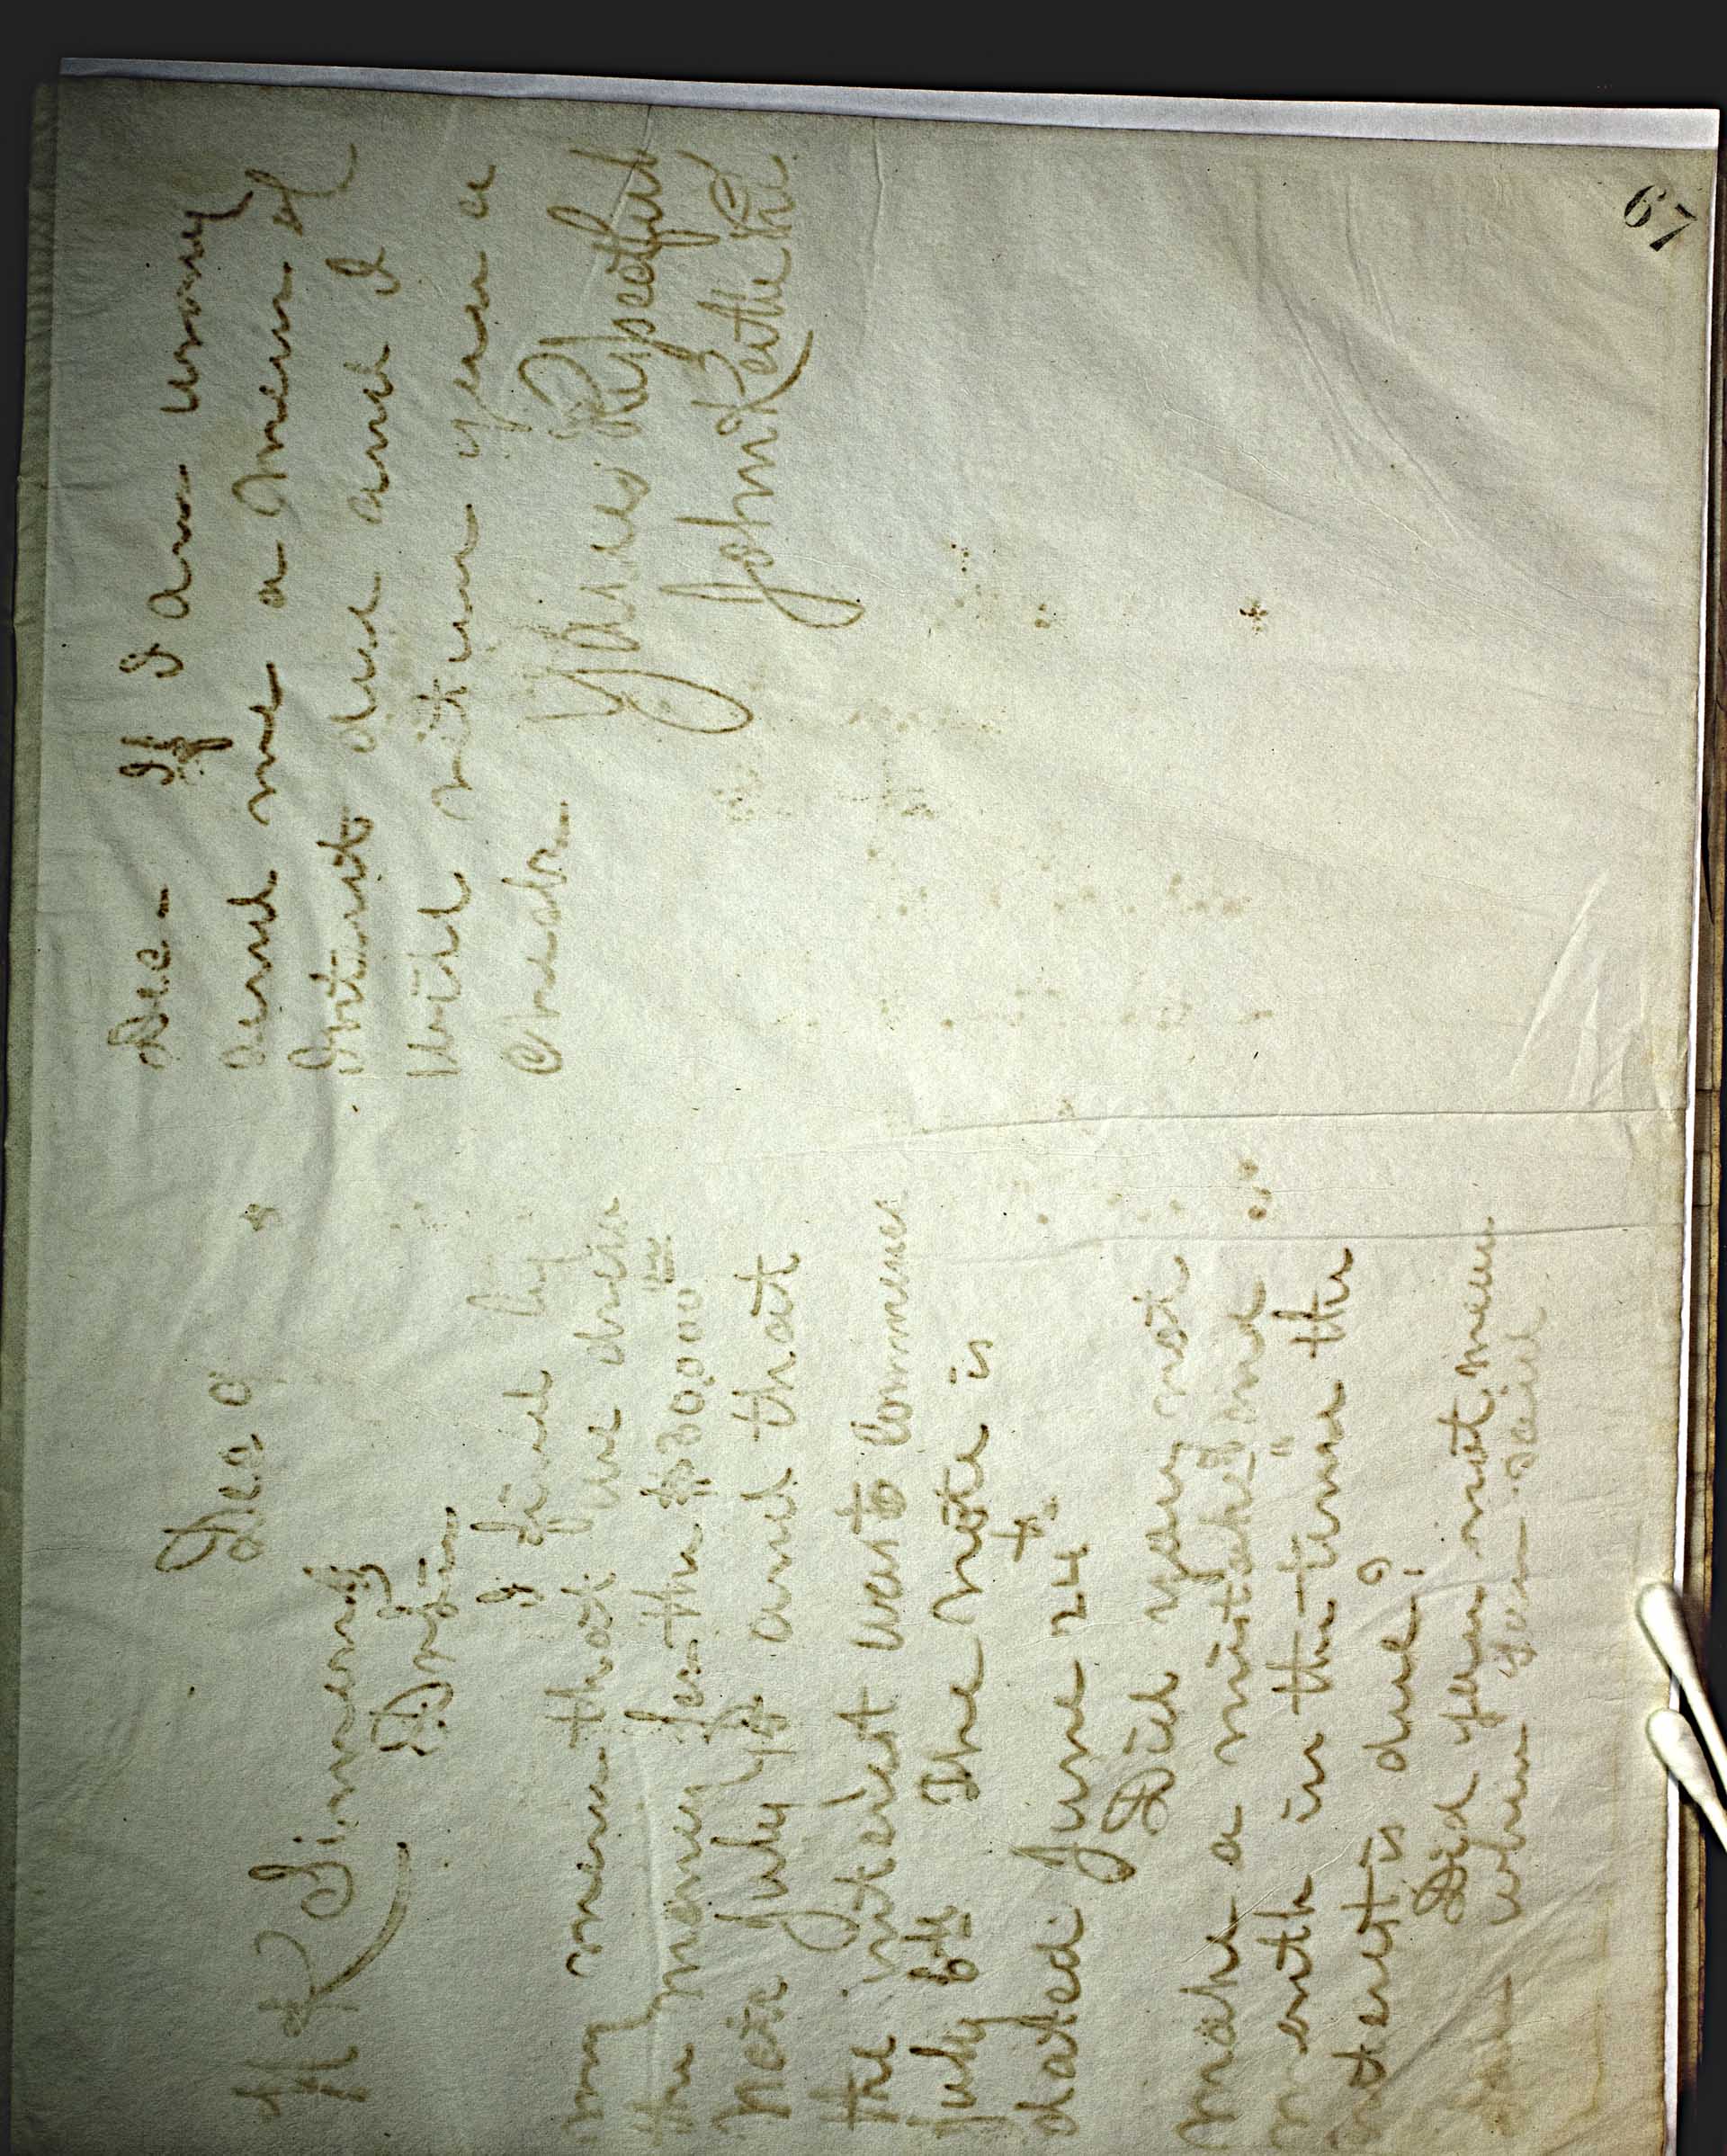 67
Dec 9
H K Simmons
D Sir
I find by
my mem that you drew
the money for the $3000.00
Note July 6 and that
the interest was to commence
July 6th The note is
dated June 24th
Did you not
make a mistake one
month in the time the
interest is due?
Did you not mean
when you said
Dec - If I am wrong
send me a mem of
Interest due and I
will return you a
check
Yours Respectfull
John